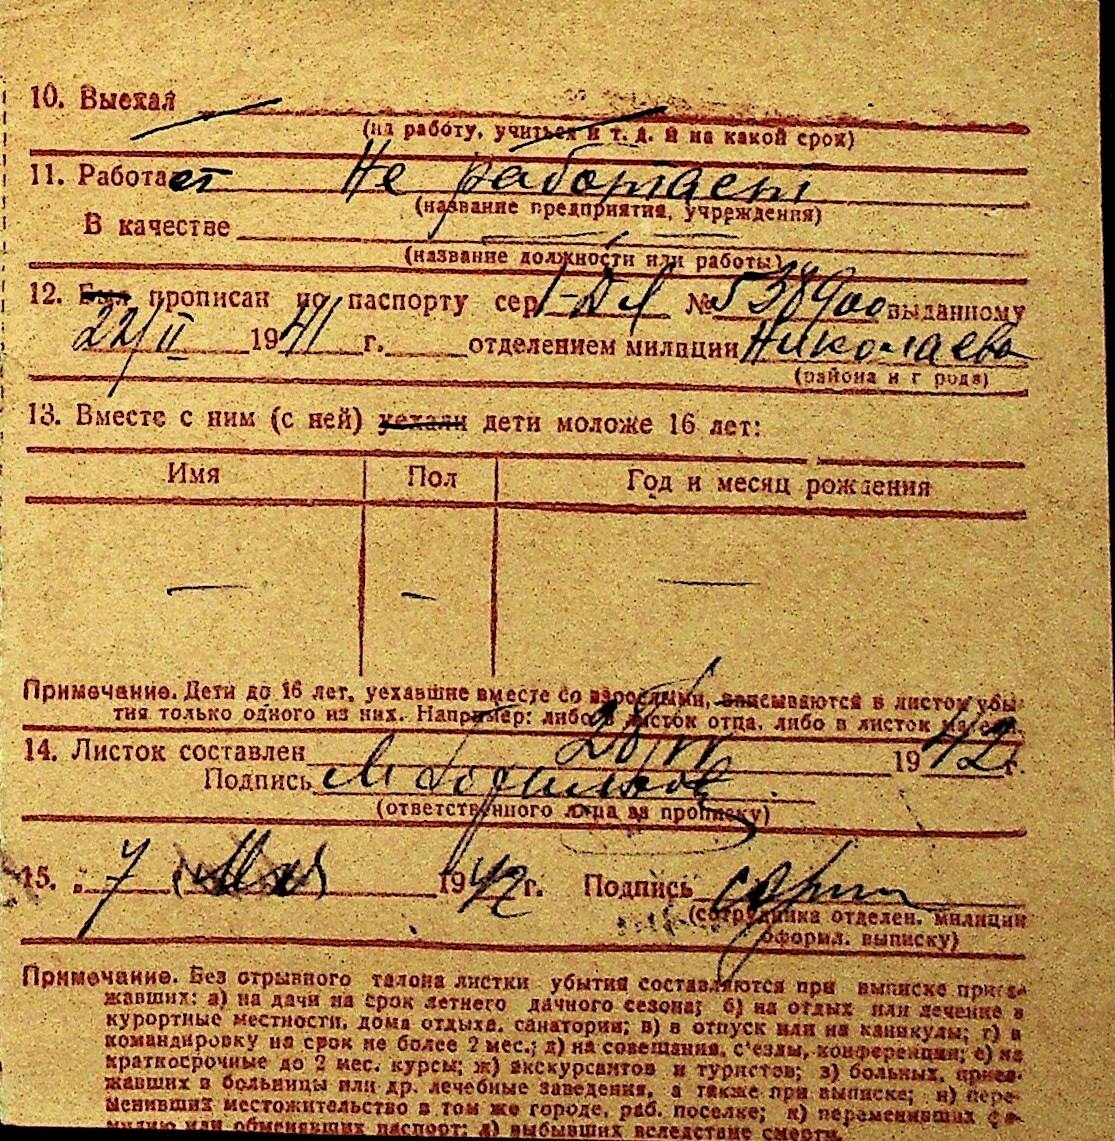 10. Выехал
(на работу, учиться и т. д. и на какой срок)
11. Работает Не работает
(название предприятия, учреждения)
В качестве
(название должности или работы)
12. Был прописан по паспорту сер. № 538900 выданному
22/II 1941 г. отделением милиции Николаева
(района и города)
13. Вместе с ним (с ней) уехали дети моложе 16 лет:
Имя Пол Год и месяц рождения
— — —
Примечание. Дети до 16 лет, уехавшие вместе со взрослыми, вписываются в листок убы-
тия только одного из них. Например: либо в листок отца, либо в листок матери.
14. Листок составлен 1942 г.
Подпись
(ответственного лица за прописку)
15. „ 7 Мая 1942 г. Подпись
(сотрудника отделен. милиции
оформл. выписку)
Примечание. Без отрывного талона листки убытия составляются при выписке приез-
жавших: а) на дачи на срок летнего дачного сезона; б) на отдых или лечение в
курортные местности, дома отдыха, санатории; в) в отпуск или на каникулы; г) в
командировку на срок не более 2 мес.; д) на совещания, с'езды, конференции; е) на
краткосрочные до 2 мес. курсы; ж) экскурсантов и туристов; з) больных, приез-
жавших в больницы или др. лечебные заведения, а также при выписке; и) пере-
менивших местожительство в том же городе, раб. поселке; к) переменивших фа-
милию или обменявших паспорт; л) выбывших вследствие смерти.